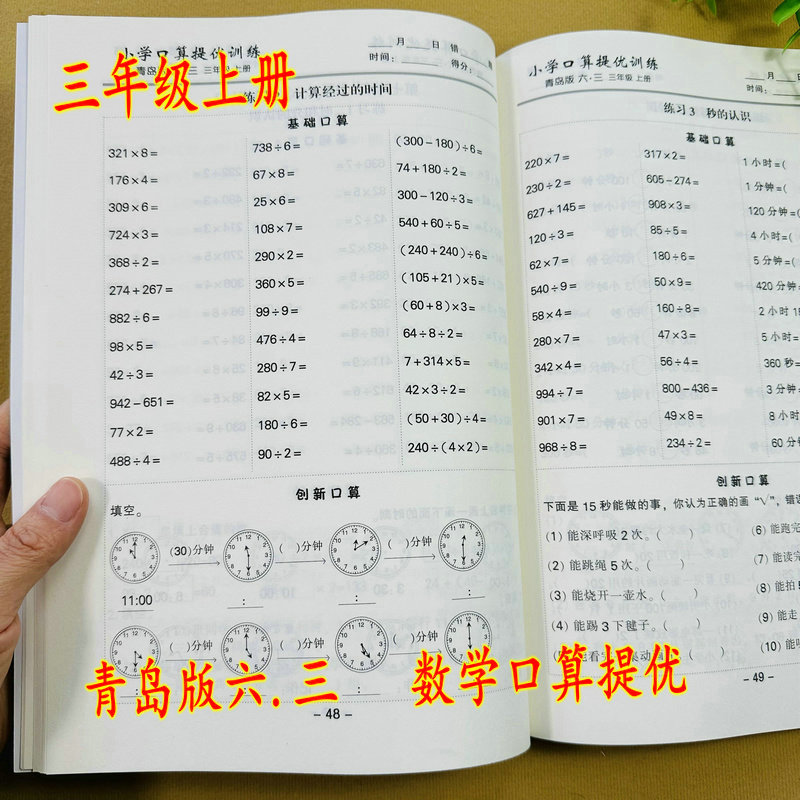 三年级上册
小学口算提优训练
青岛
三 三年级上册
月 日 错 题
时间: 得分:
练 计算经过的时间
基础口算
321×8=
176×4=
309×6=
724×3=
368÷2=
274+267=
882÷6=
98×5=
42÷3=
942-651=
77×2=
488÷4=
738÷6=
67×8=
25×6=
108×7=
290×2=
360×5=
99÷9=
476÷4=
280÷7=
82×5=
180÷6=
90÷2=
(300-180)÷6=
74+180÷2=
300-120÷3=
540+60÷5=
(240+240)÷6=
(105+21)×5=
(60+8)×3=
64÷8÷2=
7+314×5=
42×3÷2=
(50+30)÷4=
240÷(4×2)=
创新口算
填空。
(30)分钟 ( )分钟 ( )分钟
11:00 : : :
( )分钟 ( )分钟 ( )分钟
: : :
- 48 -
小学口算提优训练
青岛版 六·三 三年级上册
月
时间:
练习3 秒的认识
基础口算
220×7=
230÷2=
627+145=
120÷3=
62×7=
540÷9=
58×4=
280×7=
342×4=
994÷7=
901×7=
968÷8=
317×2=
605-274=
908×3=
85÷5=
180÷6=
50×9=
160÷8=
47×3=
56÷4=
800-436=
49×8=
234÷2=
1小时=(
1分钟=(
120分钟=(
4小时=(
5分钟=(
420分钟=
2小时
5分钟=
360秒=
3分钟=
8小时
60分钟
创新口算
下面是15秒能做的事，你认为正确的画“√”，错误
(1) 能深呼吸2次。( )
(2) 能跳绳5次。( )
(3) 能烧开一壶水。( )
(4) 能踢3下毽子。( )
(6) 能跑完
(7) 能读完
(8) 能拍
(9) 能走
(10) 能
- 49 -
青岛版六.三 数学口算提优